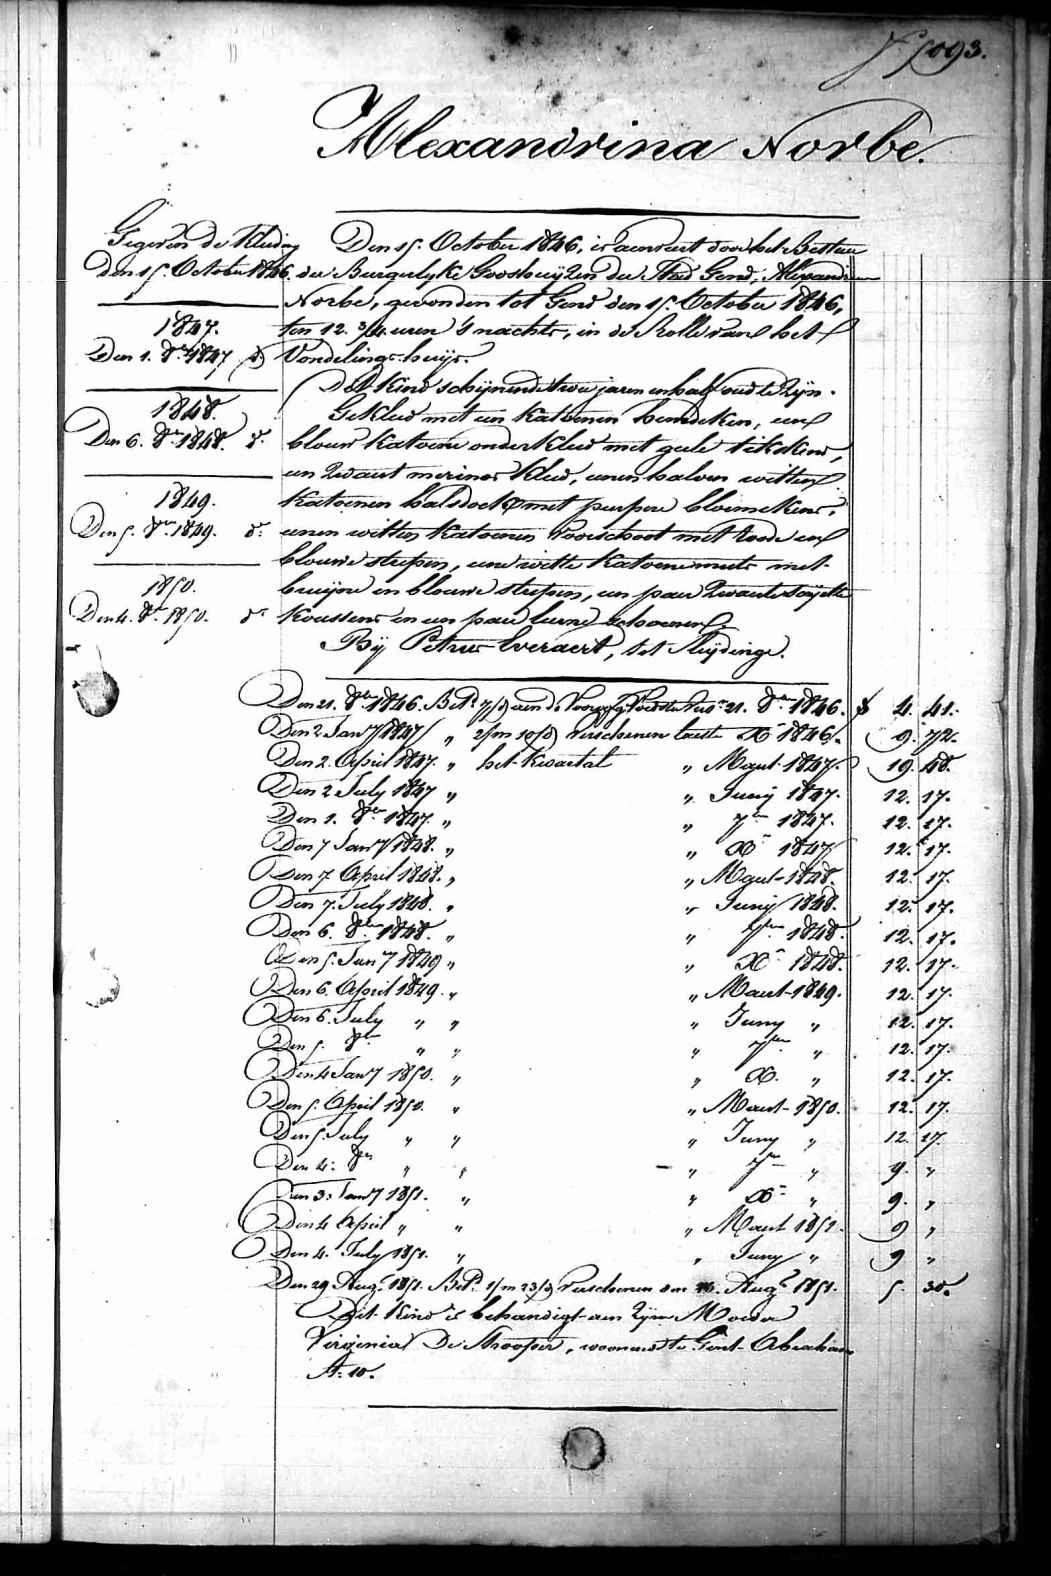 f° 1093.
Alexandrina Norbé.
Gegeven de Kleding
den 15. October 1846.
1847.
Den 1. 8ber 1847 do
1848.
Den 6. 8ber 1848. do
1849.
Den 5. 8ber 1849. do
1850.
Den 4. 8ber 1850. do
Den 15. October 1846, is aenveert door het Bestuer
der Burgerlyke Godshuyzen der Stad Gend, Alexandrina
Norbé, gevonden tot Gend den 15. October 1846,
ten 12. 3/4 uren 's nachts, in de Rolle van het
Vondelings-huys.
Dit Kind schijnende twee jaren en half oud te Zyn.
Gekleed met een Katoenen hemdeken, een
blauw Katoene onderkleed met gele tikskens,
een Zwart merinos Kleed, eenen halven witten
Katoenen halsdoek met purpere bloemekens,
eenen witten Katoenen Voorschoot met roode en
blauwe strepen, eene witte Katoene muts met
bruyne en blauwe strepen, een paer Zwarte Sayette
Koussens en een paer leirne schoenen.
By Petrus Everaert, tot Sleydinge.
Den 21. 8ber 1846. Betd 7/d aen de Voorgg Voedster tot 21. 8ber 1846. f 4. 41.
Den 2 Jany 1847 " 2/m 10/d Verschenen leste Xber 1846. 9. 72.
Den 2. April 1847. " het Kwartael " Maert 1847. 19. 48.
Den 2 July 1847 " " Juny 1847. 12. 17.
Den 1. 8ber 1847. " " 7ber 1847. 12. 17.
Den 7 Jany 1848. " " Xber 1847 12. 17.
Den 7 April 1848. " " Maert 1848. 12. 17.
Den 7. July 1848. " " Juny 1848. 12. 17.
Den 6. 8ber 1848. " " 7ber 1848. 12. 17.
Den 5. Jany 1849 " " Xber 1848. 12. 17.
Den 6. April 1849. " " Maert 1849. 12. 17.
Den 6. July " " " Juny " 12. 17.
Den 5. 8ber " " " 7ber " 12. 17.
Den 4 Jany 1850. " " X. " 12. 17.
Den 5. April 1850. " " Maert 1850. 12. 17.
Den 5. July " " " Juny " 12. 17.
Den 4. 8ber " " " 7ber " 9. "
Den 3. Jany 1851. " " Xber " 9. "
Den 4 April " " " Maert 1851. 9 "
Den 4. July 1851. " " Juny " 9 "
Den 29 Augt 1851. Betd 1/m 23/d Verschenen den 26. Augt 1851. 5. 30.
Dit Kind is behandigt aen Zyne Moeder
Virginia De Strooper, woonende te Gent Abraham
St. 10.